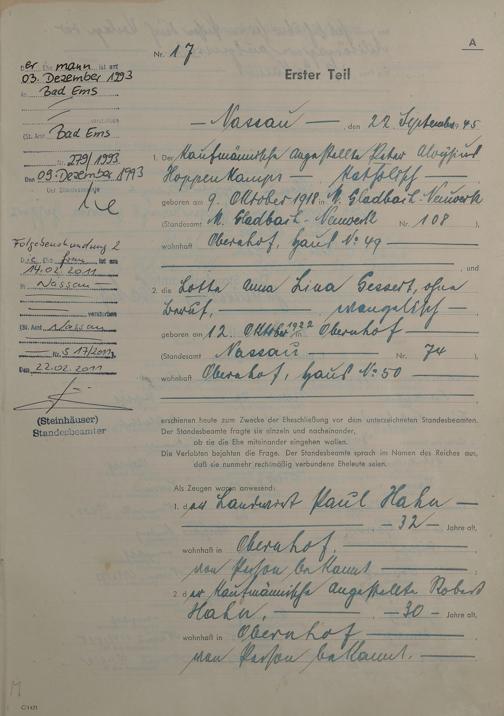 A
Nr. 17
Erster Teil
Der Ehemann ist am
03. Dezember 1993
in Bad Ems
verstorben
(St. Amt Bad Ems
Nr. 279/1993
Den 09. Dezember 1993
Der Standesbeamte
Folgebeurkundung 2
Die Ehefrau ist am
14.02.2011
in Nassau
verstorben
(St. Amt Nassau
Nr. S 17/2011)
Den 22.02.2011
(Steinhäuser)
Standesbeamter
— Nassau —, den 22. September 1945
1. Der kaufmännische Angestellte Peter Aloysius
Hoppenkamps — katholisch —
geboren am 9. Oktober 1918 in M. Gladbach-Neuwerk
(Standesamt M. Gladbach-Neuwerk Nr. 108),
wohnhaft Obernhof, Haus No 49
und
2. die Lotte Anna Lina Gessert, ohne
Beruf, — evangelisch —
geboren am 12. Oktober 1922 in Obernhof
(Standesamt Nassau Nr. 74)
wohnhaft Obernhof, Haus No 50
erschienen heute zum Zwecke der Eheschließung vor dem unterzeichneten Standesbeamten.
Der Standesbeamte fragte sie einzeln und nacheinander,
ob sie die Ehe miteinander eingehen wollen.
Die Verlobten bejahten die Frage. Der Standesbeamte sprach im Namen des Reiches aus,
daß sie nunmehr rechtmäßig verbundene Eheleute seien.
Als Zeugen waren anwesend:
1. der Landwirt Paul Hahn —
— 32 — Jahre alt,
wohnhaft in Obernhof.
von Person bekannt
2. der kaufmännische Angestellte Robert
Hahn, — 30 — Jahre alt,
wohnhaft in Obernhof
von Person bekannt. —